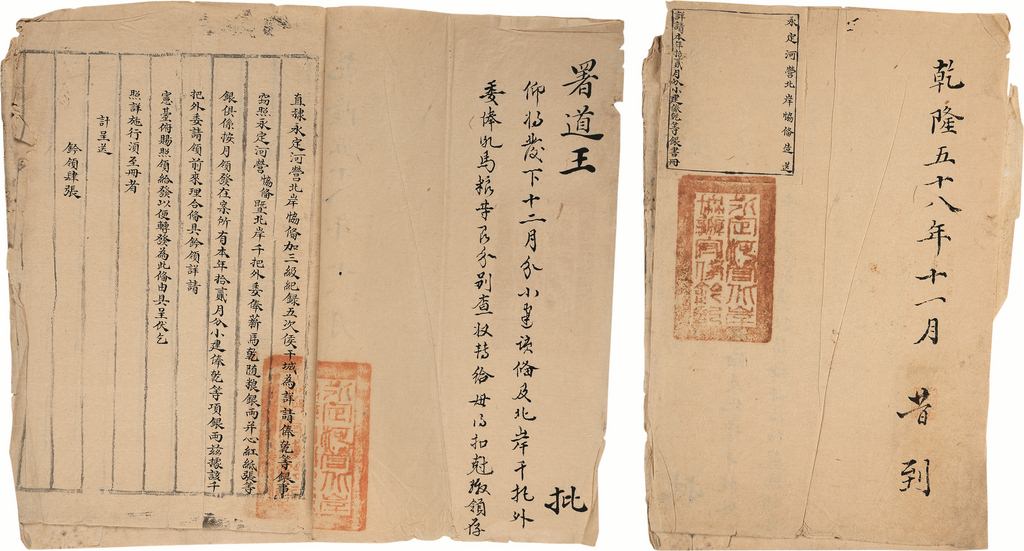 乾隆五十八年十一月 昔到
永定河營北岸協備造送
詳請本年拾貳月分小建俸乾等銀書冊
署道王 批
仰将發下十二月分小建该俻及北岸千把外
委俸乾馬粮等艮分别查收转给毋得扣尅缴領存
直隸永定河營北岸協備加三級紀録五次侯干城為詳請俸乾等銀事
窃照永定河營協備暨北岸千把外委俸薪馬乾随粮銀両并心紅紙張等
銀俱係按月領發在案所有本年拾貳月分小建俸乾等項銀両兹據該千
把外委請領前來理合偹具鈐領詳請
憲臺俯賜照領給發以便轉發為此偹由具呈伏乞
照詳施行須至冊者
計呈送
鈐領肆張